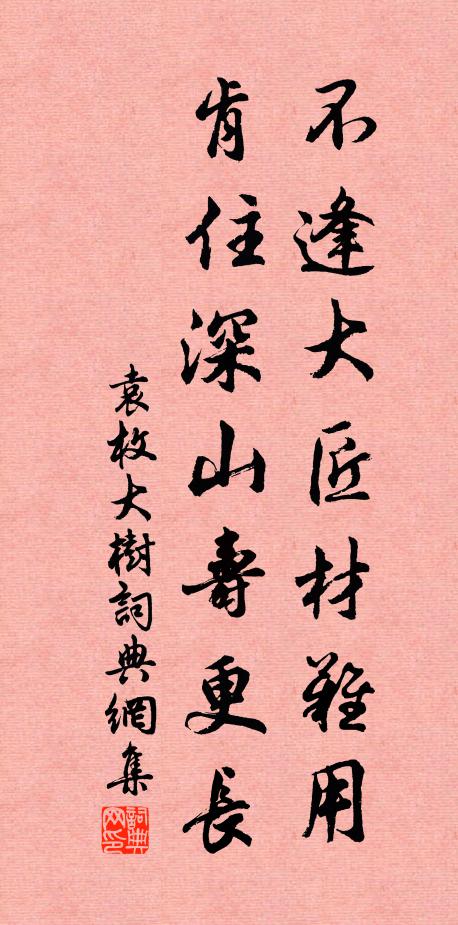 不逢大匠材難用
肯住深山壽更長
袁枚大樹詞典網集
詞典网印